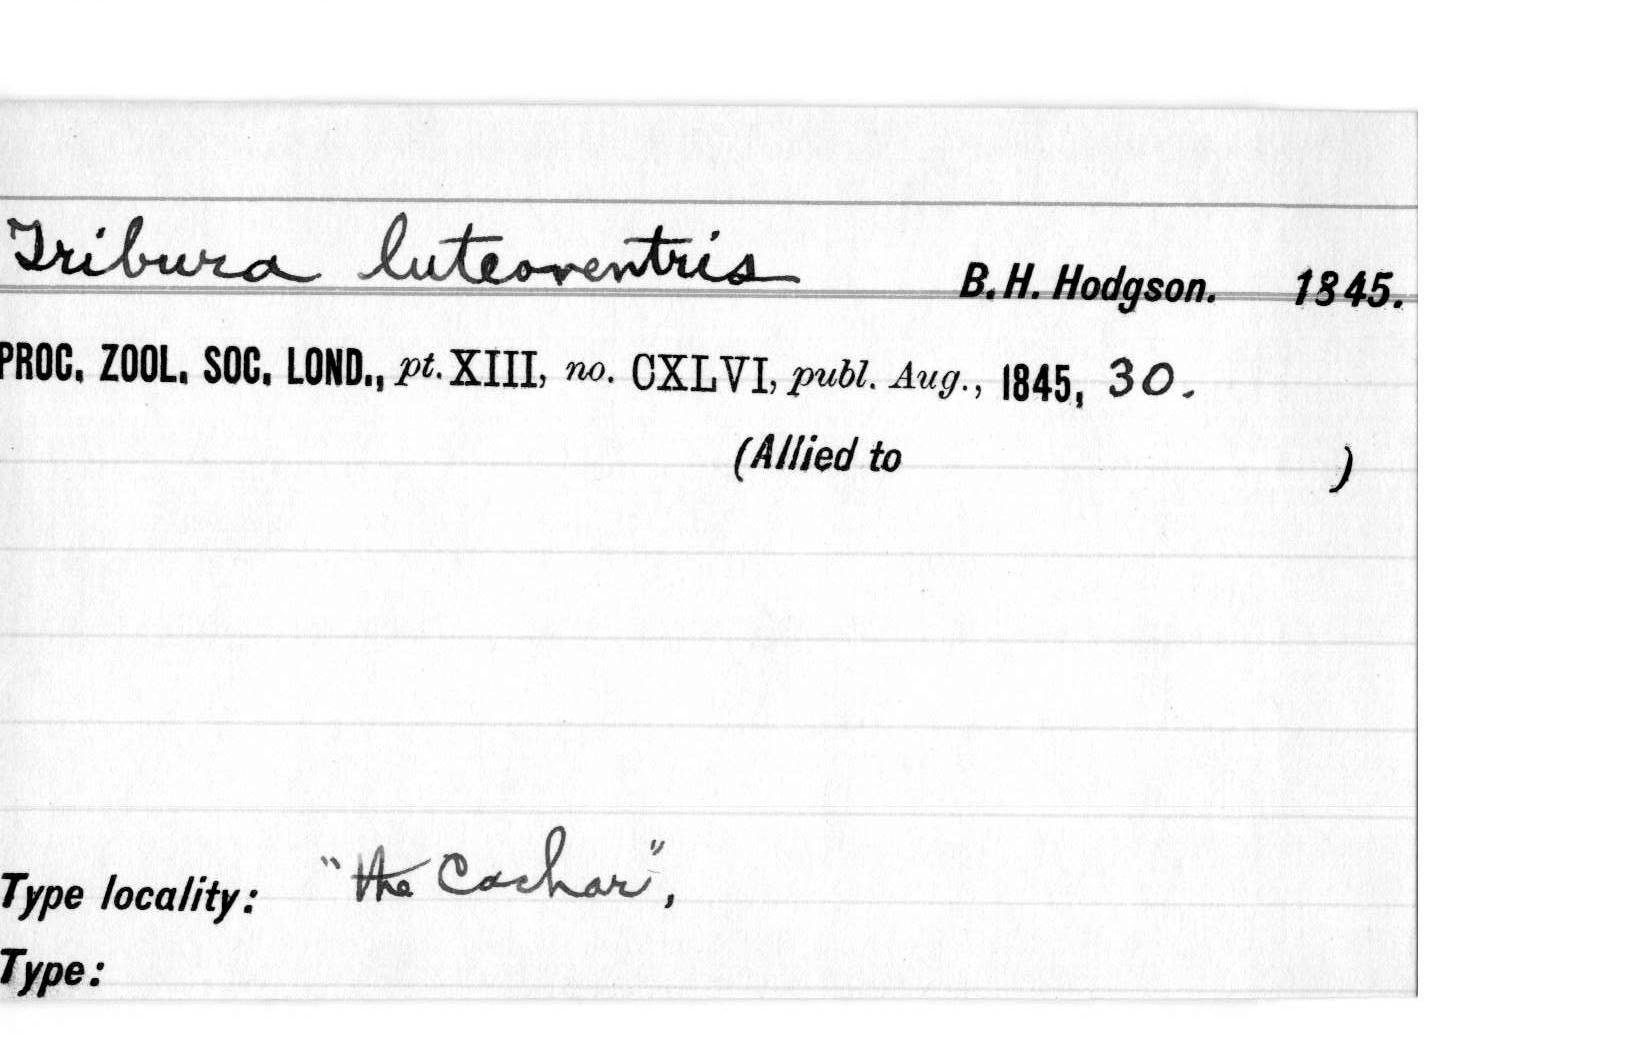 Tribura luteoventris B. H. Hodgson. 1845.
PROC. ZOOL. SOC. LOND., pt. XIII, no. CXLVI, publ. Aug., 1845, 30.
(Allied to )
Type locality: "the Cachar",
Type: